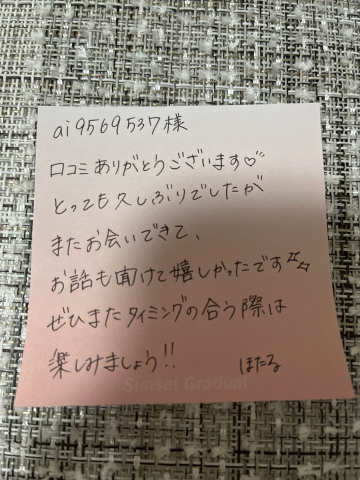 ai9569537様
口コミありがとうございます♡
とっても久しぶりでしたが
またお会いできて、
お話も聞けて嬉しかったです
ぜひまたタイミングの合う際は
楽しみましょう!!
ほたる
Sunset Gradual